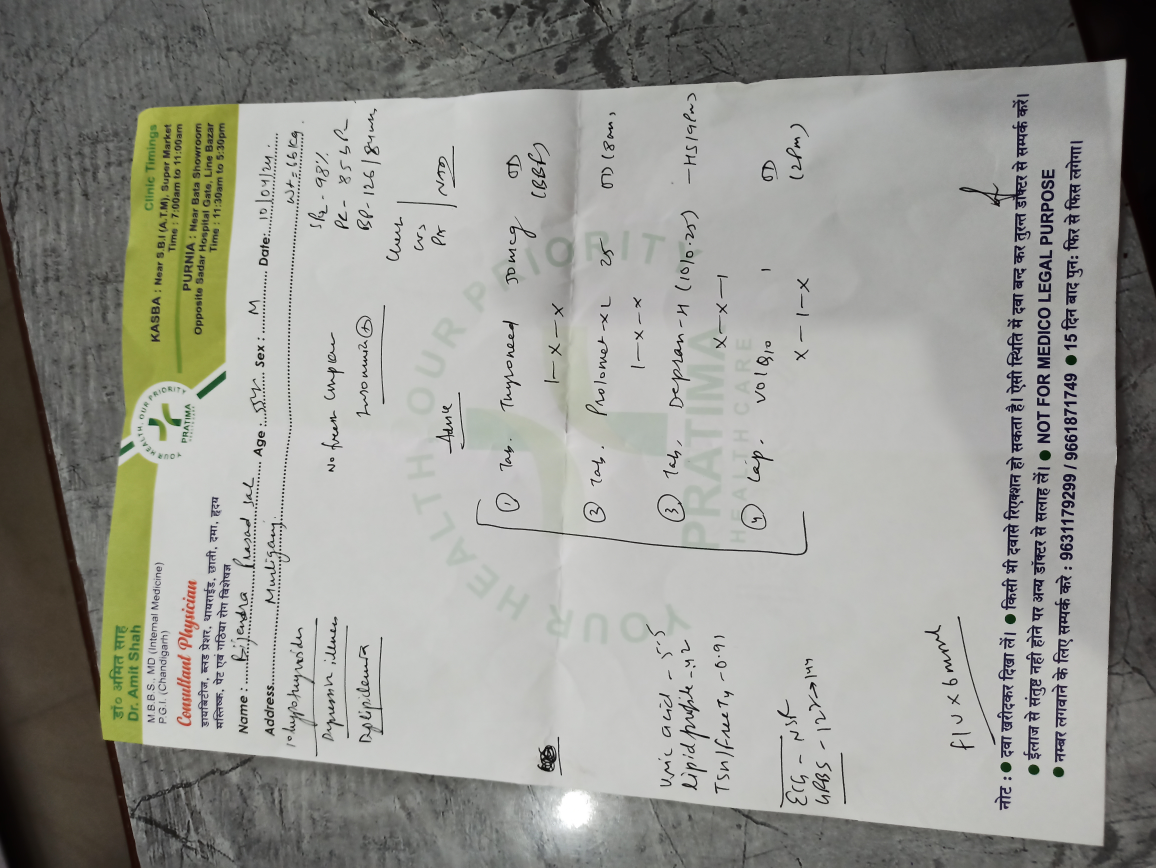 डॉ० अमित साह
Dr. Amit Shah
M.B.B.S., MD (Internal Medicine)
P.G.I. (Chandigarh)
Consultant Physician
डायबिटीज, ब्लड प्रेशर, थायराईड, छाती, दमा, हृदय
मस्तिष्क, पेट एवं गठिया रोग विशेषज्ञ
YOUR HEALTH, OUR PRIORITY
PRATIMA
HEALTH CARE
Clinic Timings
KASBA : Near S.B.I (A.T.M), Super Market
Time : 7:00am to 11:00am
PURNIA : Near Bata Showroom
Opposite Sadar Hospital Gate, Line Bazar
Time : 11:30am to 5:30pm
Name : Brijendra Prasad Sah Age : Sex : M Date: 10/04/24
Address Murliganj Wt = 66 kg.
hypothyroidism
Depression illness
Dyslipidemia
No fresh complain
Insomnia (+)
SPO2 - 98%
PR - 85 bPM
BP - 126/84 mm
Chest
CVS
PA
NAD
Advice
① Tab. Thyroneed 50 mcg OD
1-x-x (BBF)
② Tab. Prolomet-XL 25 OD (8am)
1-x-x
③ Tab. Depran-H (10/0.25) - HS (9Pm)
x-x-1
④ Cap. Vol Q10 1 OD
x-1-x (2Pm)
Uric acid - 5.5
Lipid profile
TSH/Free T4 - 0.91
ECG - NSR
GRBS - 122
F/U x 6 month
नोट : ● दवा खरीदकर दिखा लें। ● किसी भी दवासे रिएक्शन हो सकता है। ऐसी स्थिति में दवा बन्द कर तुरन्त डॉक्टर से सम्पर्क करें।
● ईलाज से संतुष्ट नही होने पर अन्य डॉक्टर से सलाह लें। ● NOT FOR MEDICO LEGAL PURPOSE
● नम्बर लगवाने के लिए सम्पर्क करे : 9631179299 / 9661871749 ● 15 दिन बाद पुनः फिर से फिस लगेगा।